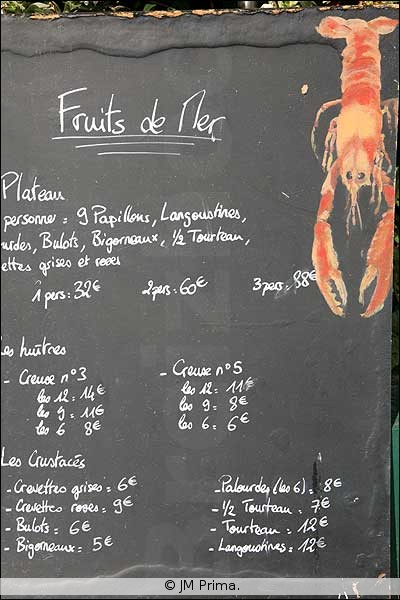 Fruits de Mer
Plateau
personne = 9 Papillons, Langoustines,
urdes, Bulots, Bigorneaux, ½ Tourteau,
ettes grises et roses
1 pers: 32€ 2 pers: 60€ 3 pers: 88€
es huîtres
- Creuse n°3
les 12 = 14€
les 9 = 11€
les 6 8€
- Creuse n°5
les 12 = 11€
les 9 = 8€
les 6 = 6€
Les Crustacés
- Crevettes grises = 6€
- Crevettes roses = 9€
- Bulots = 6€
- Bigorneaux = 5€
- Palourdes (les 6) = 8€
- ½ Tourteau = 7€
- Tourteau = 12€
- Langoustines = 12€
© JM Prima.